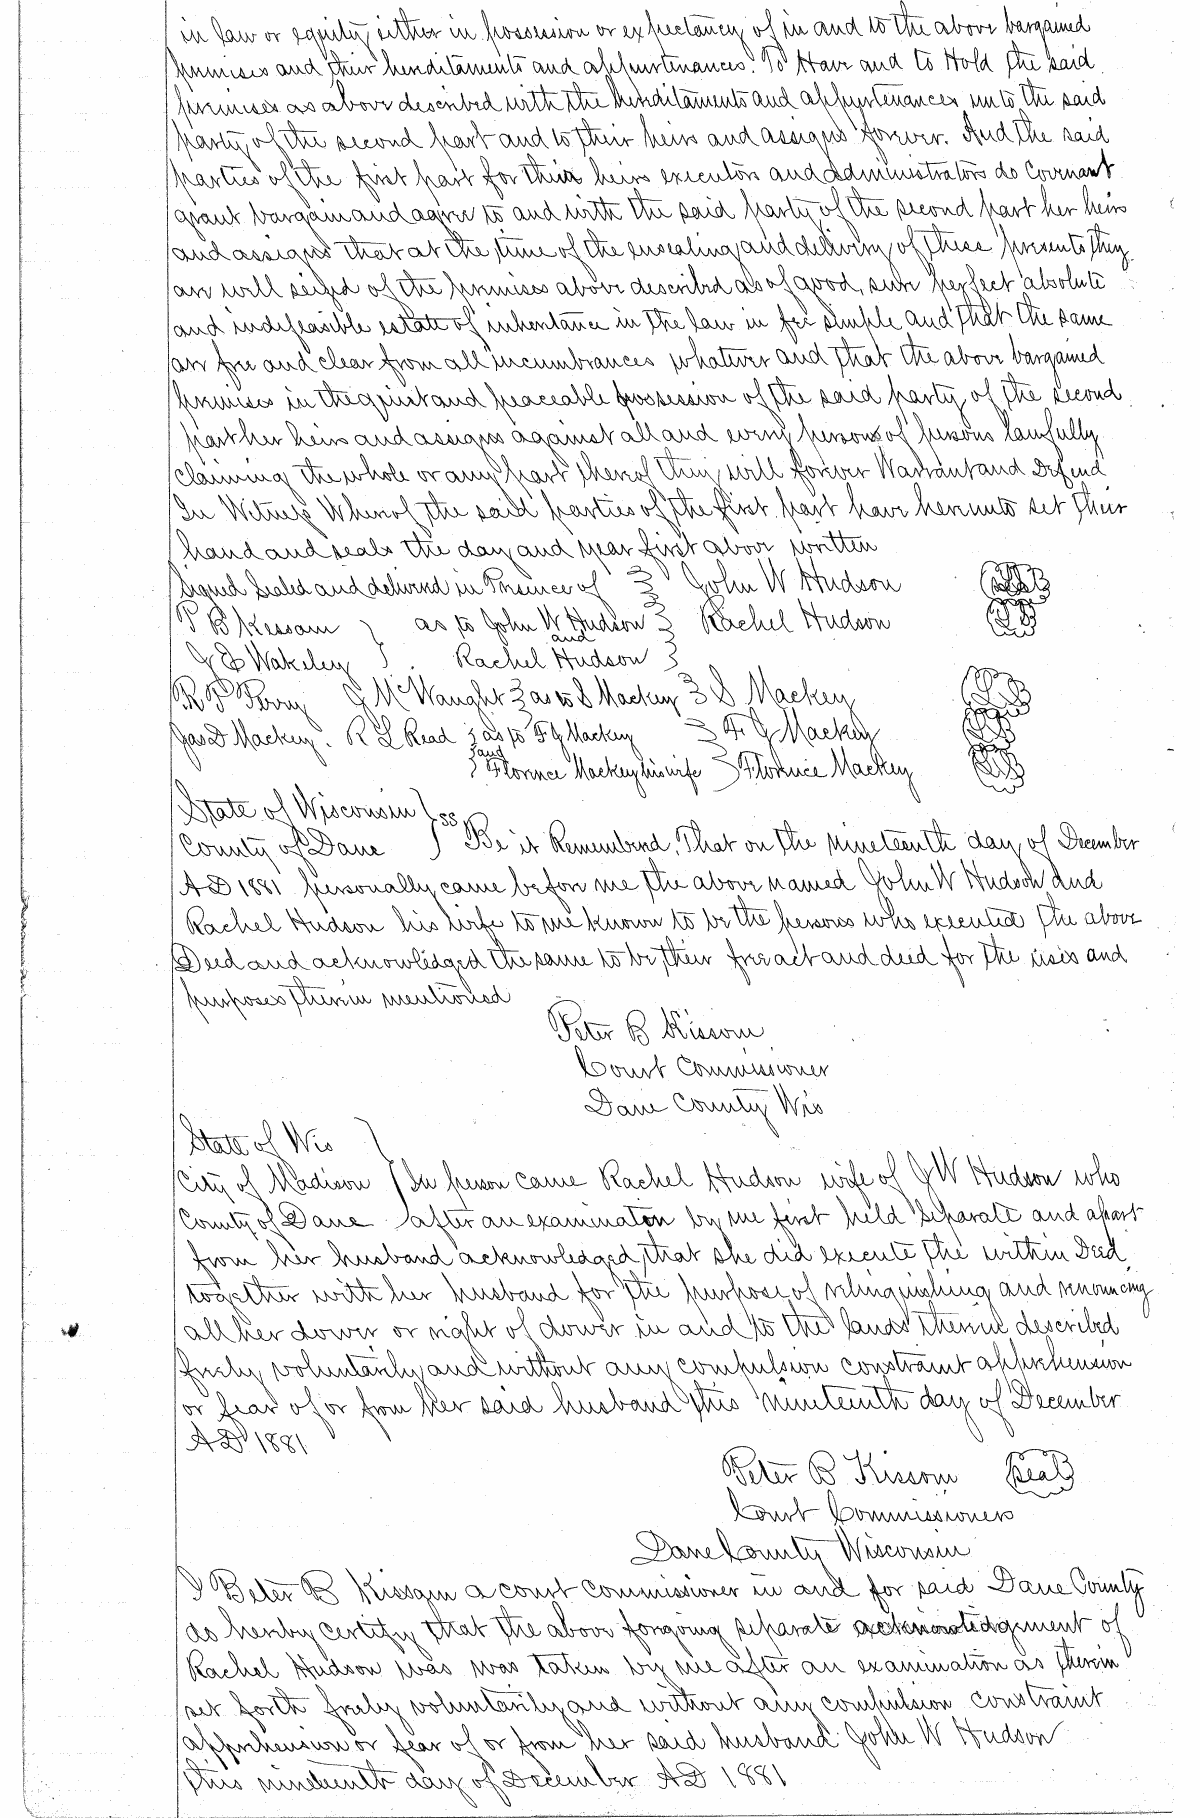 in law or equity either in possession or expectancy of in and to the above bargained
premises and their hereditaments and appurtenances. To Have and to Hold the said
premises as above described with the hereditaments and appurtenances unto the said
party of the second part and to their heirs and assigns forever. And the said
parties of the first part for their heirs executors and administrators do Covenant
grant bargain and agree to and with the said party of the second part her heirs
and assigns that at the time of the ensealing and delivery of these presents they
are will seized of the premises above described as of good, sure perfect absolute
and indefeasible estate of inheritance in the law in fee simple and that the same
are free and clear from all incumbrances whatever and that the above bargained
premises in the quiet and peaceable possession of the said party of the second
part her heirs and assigns against all and every person of persons lawfully
claiming the whole or any part thereof they will forever Warrant and Defend
In Witness Whereof the said parties of the first part have hereunto set their
hand and seals the day and year first above written
Signed Sealed and delivered in Presence of John W Hudson Seal
P B Kissam as to John W Hudson Rachel Hudson
and
J E Wakeley Rachel Hudson
R P Perry J McWaught as to S Mackey S Mackey
Jas D Mackey. R L Read as to F G Mackey F G Mackey
and
Florence Mackey his wife Florence Mackey
State of Wisconsin } ss
County of Dane } Be it Remembered, That on the nineteenth day of December
AD 1881 personally came before me the above named John W Hudson and
Rachel Hudson his wife to me known to be the persons who executed the above
Deed and acknowledged the same to be their free act and deed for the uses and
purposes therein mentioned
Peter B Kissom
Court Commissioner
Dane County Wis
State of Wis }
City of Madison } In person came Rachel Hudson wife of J W Hudson who
County of Dane after an examinaton by me first held separate and apart
from her husband acknowledged, that she did execute the within Deed
together with her husband for the purpose of relinquishing and renouncing
all her dower or right of dower in and to the lands therein described
freely voluntarily and without any compulsion constraint apprehension
or fear of or from her said husband this nineteenth day of December
AD 1881
Peter B Kissom Seal
Court Commissioners
Dane County Wisconsin
I Peter B Kissam a court commissioner in and for said Dane County
do hereby certify that the above forgoing separate acknowledgment of
Rachel Hudson was was taken by me after an examination as therein
set forth freely voluntarily and without any compulsion constraint
apprehension or fear of or from her said husband John W Hudson
this nineteenth day of December AD 1881